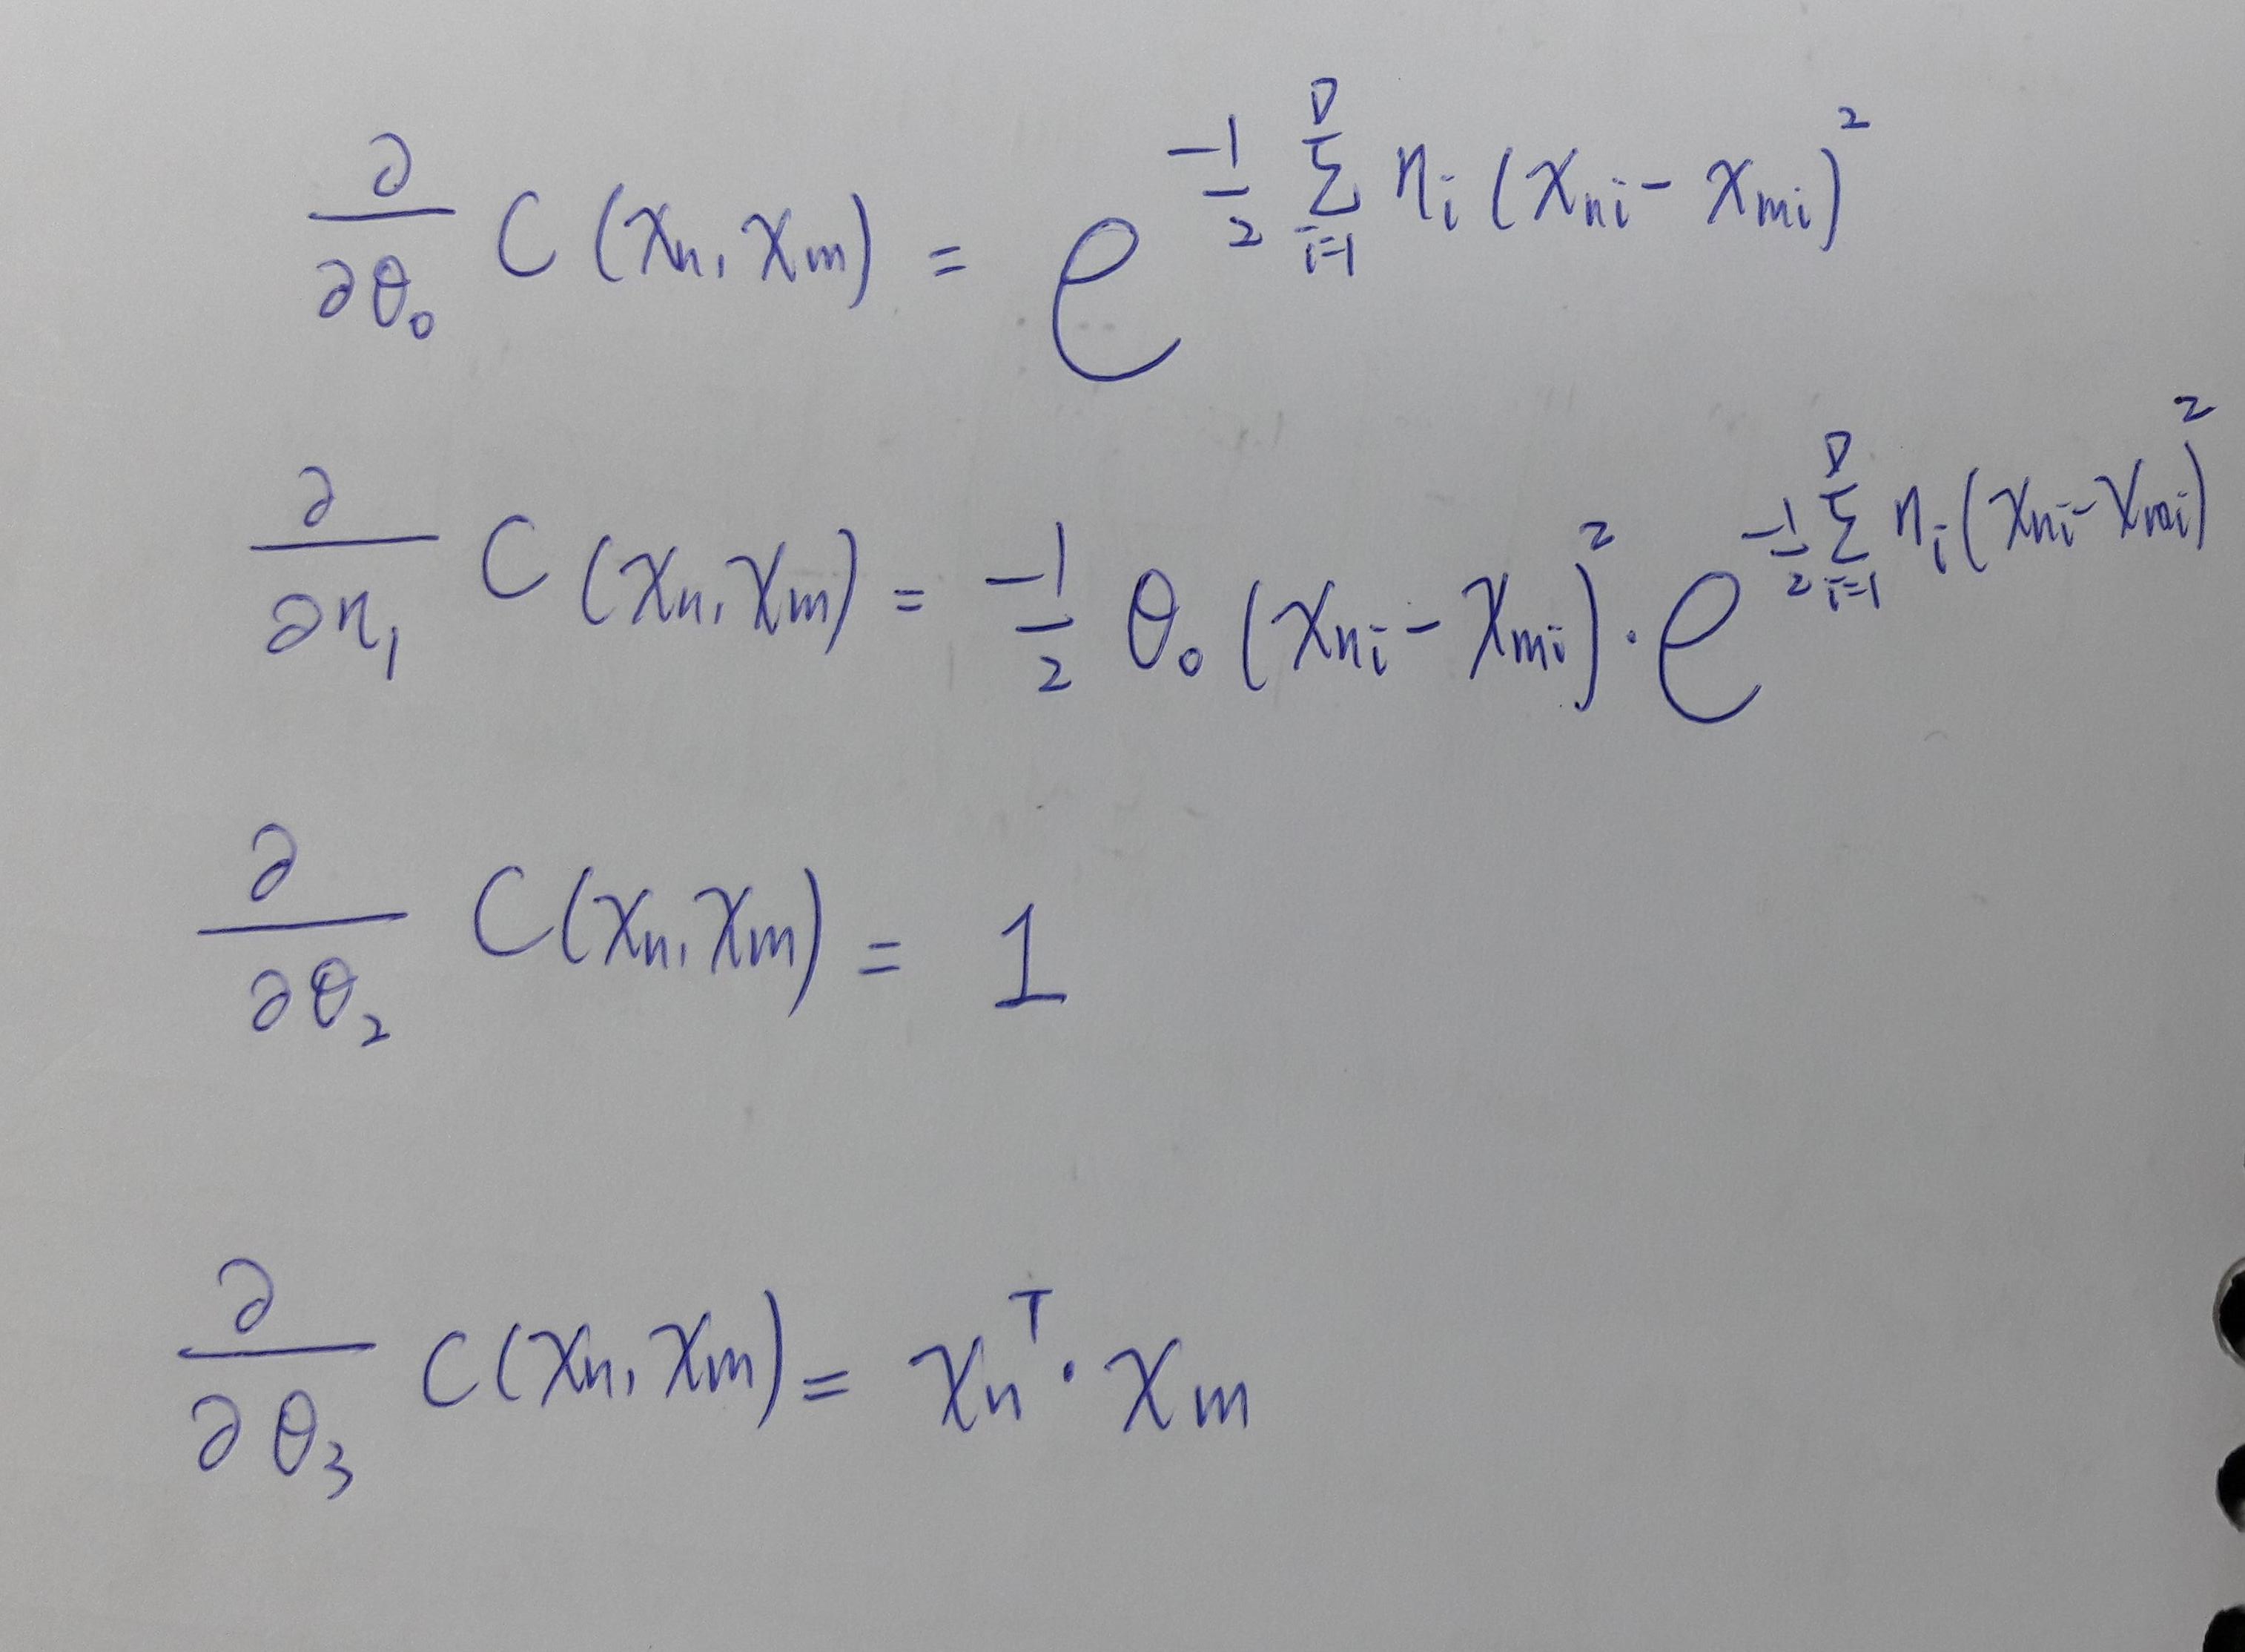 ∂/∂θ₀ C(xₙ, xₘ) = e^{-1/2 Σ_{i=1}^{D} η_i (x_{ni} - x_{mi})²}
∂/∂η₁ C(xₙ, xₘ) = -1/2 θ₀ (x_{ni} - x_{mi})² · e^{-1/2 Σ_{i=1}^{D} η_i (x_{ni} - x_{mi})²}
∂/∂θ₂ C(xₙ, xₘ) = 1
∂/∂θ₃ C(xₙ, xₘ) = xₙᵀ · xₘ